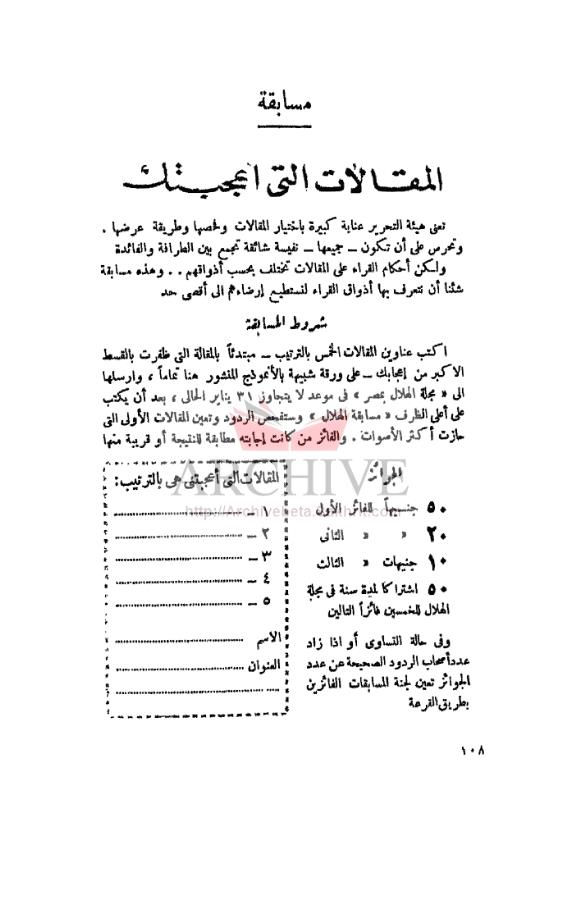 مسابقة
المقالات التى أعجبتك
تعنى هيئة التحرير عناية كبيرة باختيار المقالات وفحصها وطريقة عرضها .
وتحرص على أن تكون – جميعها – نفيسة شائقة تجمع بين الطرافة والفائدة
ولكن أحكام القراء على المقالات تختلف بحسب أذواقهم . . وهذه مسابقة
شئنا أن نتعرف بها أذواق القراء لنستطيع إرضاءهم الى أقصى حد
شروط المسابقة
اكتب عناوين المقالات الخمس بالترتيب – مبتدئاً بالمقالة التى ظفرت بالقسط
الاكبر من إعجابك – على ورقة شبيهة بالأنموذج المنشور هنا تماماً ، وارسلها
الى « مجلة الهلال بمصر » فى موعد لا يتجاوز ٣١ يناير الحالى ، بعد أن يكتب
على أعلى الظرف « مسابقة الهلال » وستفحص الردود وتعين المقالات الأولى التى
حازت أكثر الأصوات . والفائز من كانت إجابته مطابقة للنتيجة أو قريبة منها
الجوائز
٥٠ جنيهاً للفائز الأول
٢٠ « « الثانى
١٠ جنيهات « الثالث
٥٠ اشتراكا لمدة سنة فى مجلة
الهلال للخمسين فائزاً التالين
وفى حالة التساوى أو اذا زاد
عدد أصحاب الردود الصحيحة عن عدد
الجوائز تعين لجنة المسابقات الفائزين
بطريق القرعة
المقالات التى أعجبتنى هى بالترتيب :
١ – ..............................
٢ – ..............................
٣ – ..............................
٤ – ..............................
٥ – ..............................
الاسم ..............................
العنوان ..............................
..............................
١٠٨
ARCHIVE